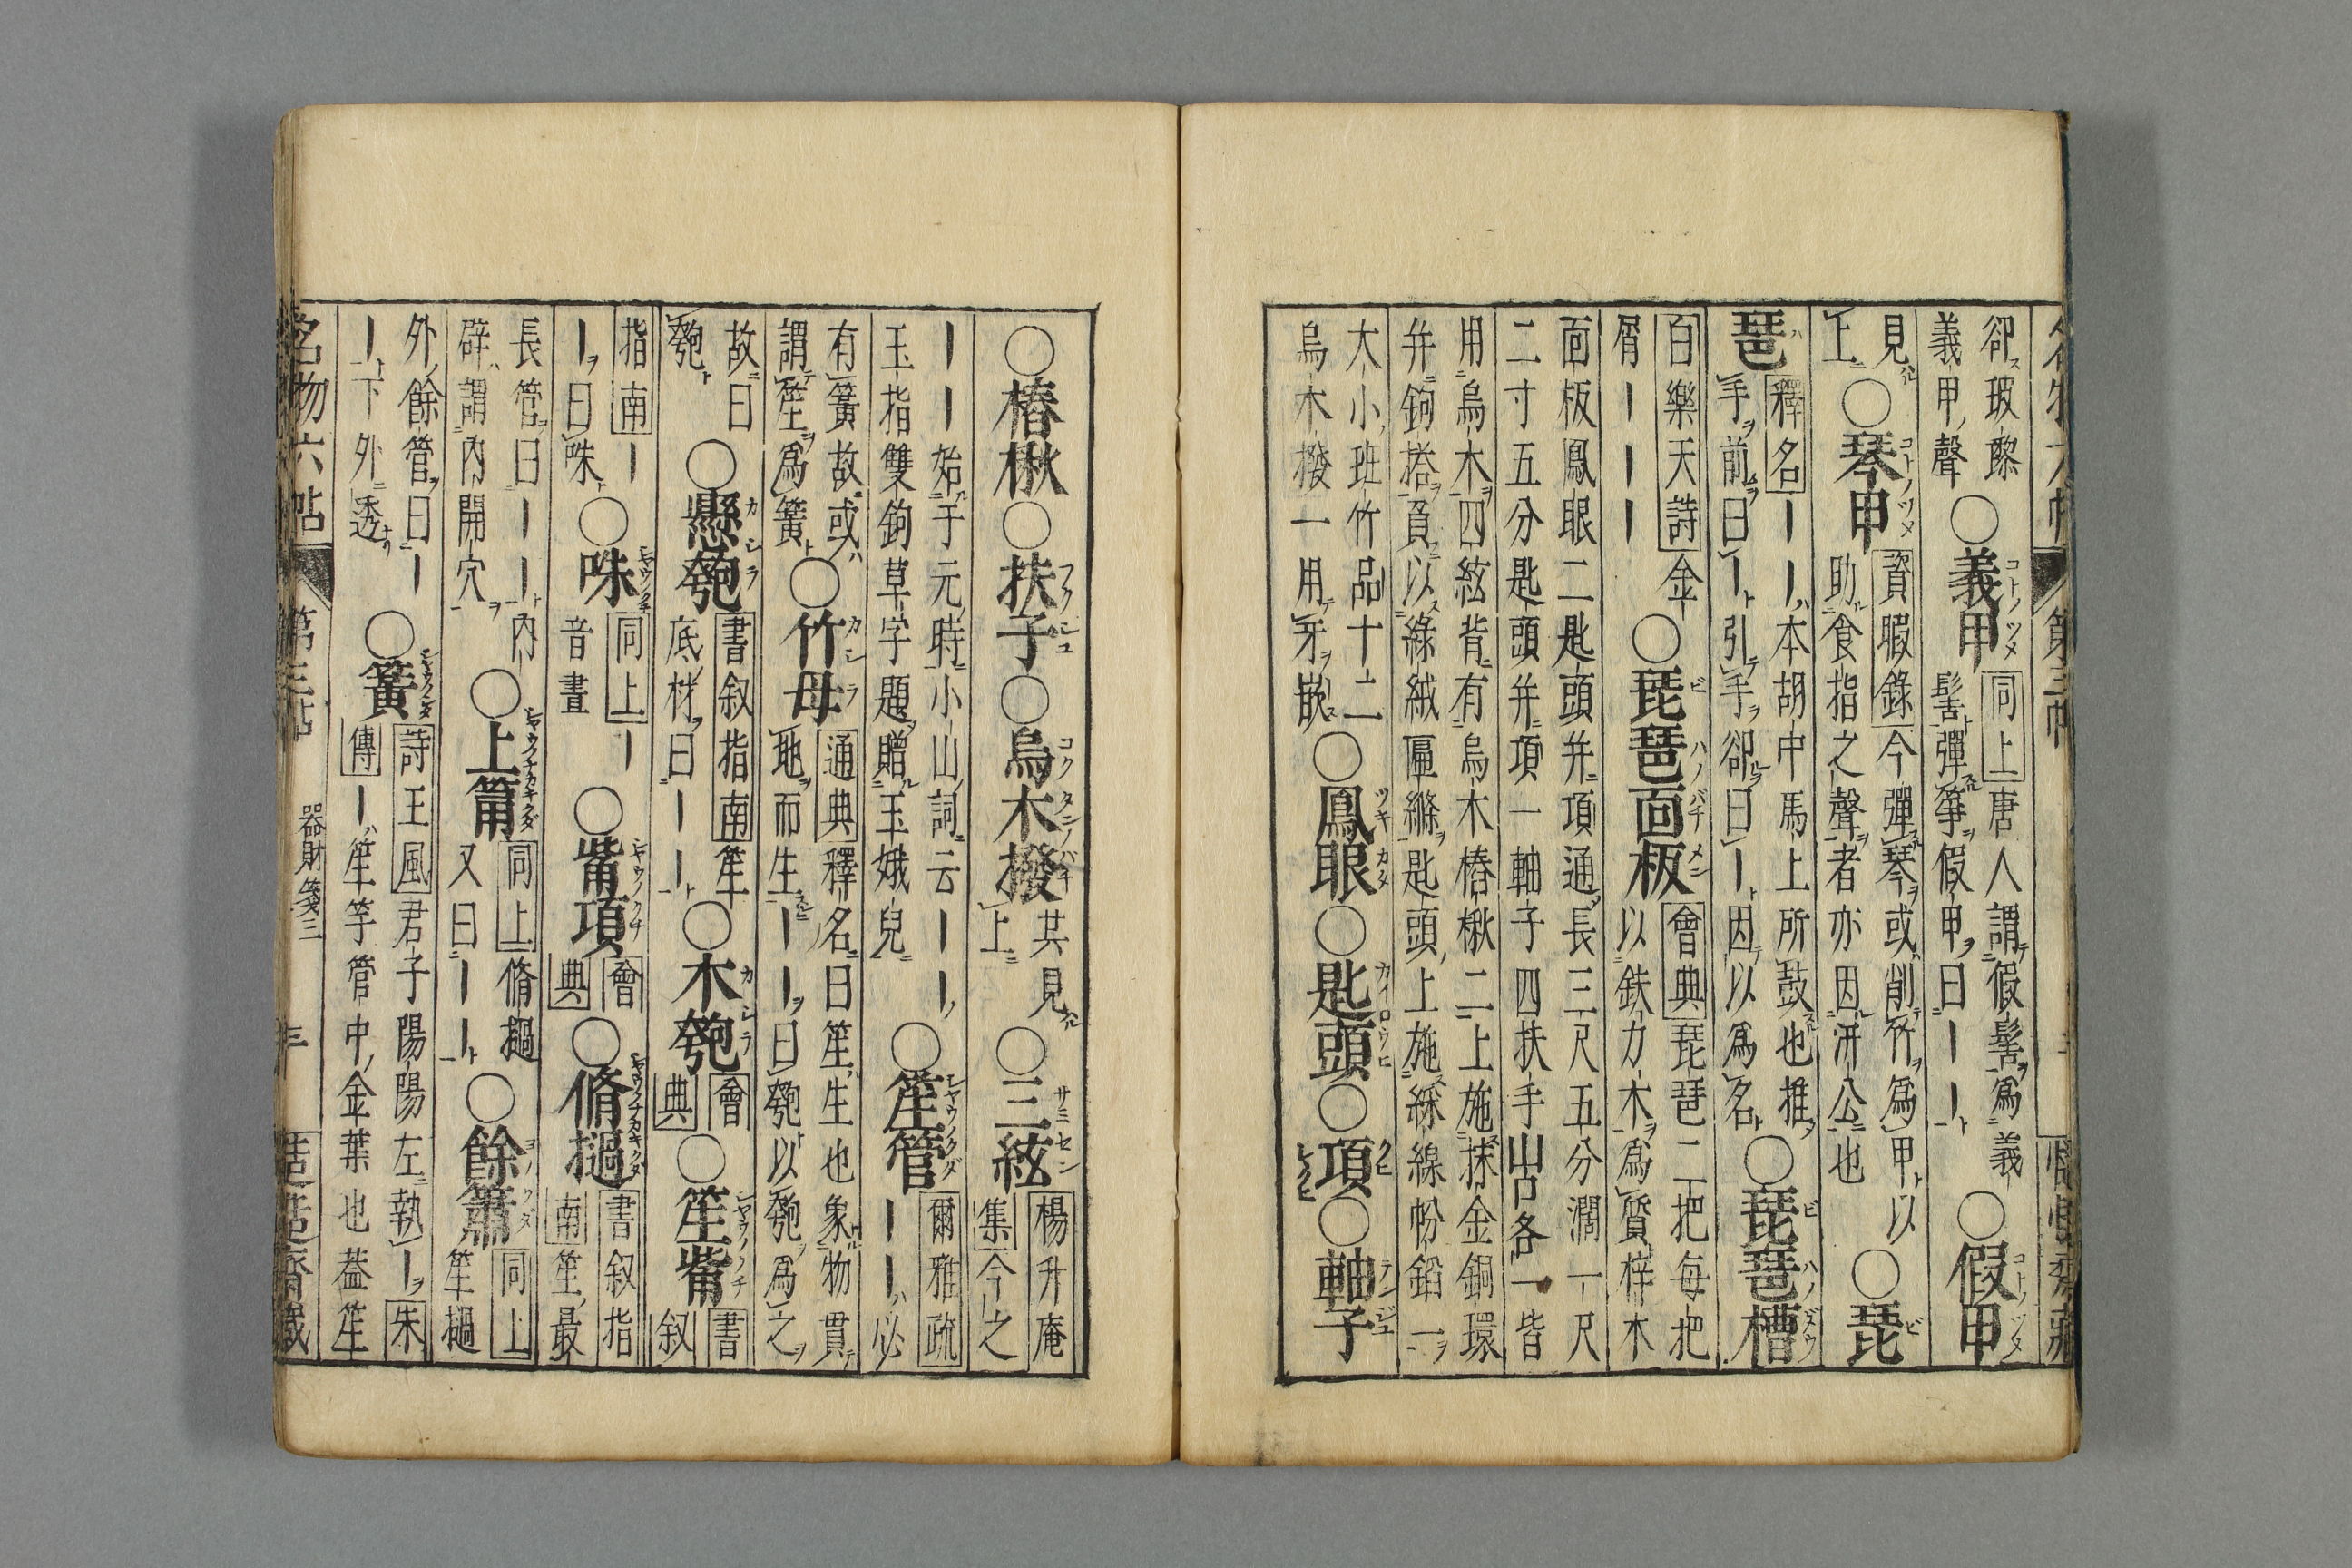 卻玻瓈
義甲聲
〇義甲
同上唐人謂假髻爲義
髻彈箏假甲曰｜｜
〇假甲
見
上
〇琴甲
資暇錄今彈琴或削竹爲甲以
助食指之聲者亦因汧公也
〇琵
琶
釋名｜｜本胡中馬上所鼓也推
手前曰｜引手卻曰｜因以爲名
〇琵琶槽
白樂天詩金
屑｜｜｜｜
〇琵琶面板
會典琵琶二把每把
以鉄力木爲質梓木
面板鳳眼二匙頭并項通長三尺五分濶一尺
二寸五分匙頭并項一軸子四扶手山口各一皆
用烏木四絃背有烏木樁楸二上施抹金銅環
并鉤搭肩以綠絨匾縧匙頭上施綵線帉錔一
大小班竹品十二
烏木撥一用牙嵌
〇鳳眼〇匙頭〇項〇軸子
〇樁楸〇扶子〇烏木撥
共見
上
〇三絃
楊升庵
集今之
｜｜始于元時小山詞云｜｜
玉指雙鉤草字題贈玉娥兒
〇笙管
爾雅疏
｜｜必
有簧故或
謂笙爲簧
〇竹母
通典釋名曰笙生也象物貫
地而生｜｜曰匏以匏爲之
故曰
匏
〇懸匏
書叙指南笙
底材曰｜｜
〇木匏
會
典
〇笙觜
書
叙
指南｜
｜曰咮
〇咮
同上｜
音晝
〇觜項
會
典
〇脩檛
書叙指
南笙最
長管曰｜｜内
辟謂内開穴
〇上筩
同上脩檛
又曰｜｜
〇餘簫
同上
笙檛
外餘管曰｜
｜下外透
〇簧
詩王風君子陽陽左執｜朱
傳｜笙竽管中金葉也葢笙
名物六帖 第三帖 器財箋三